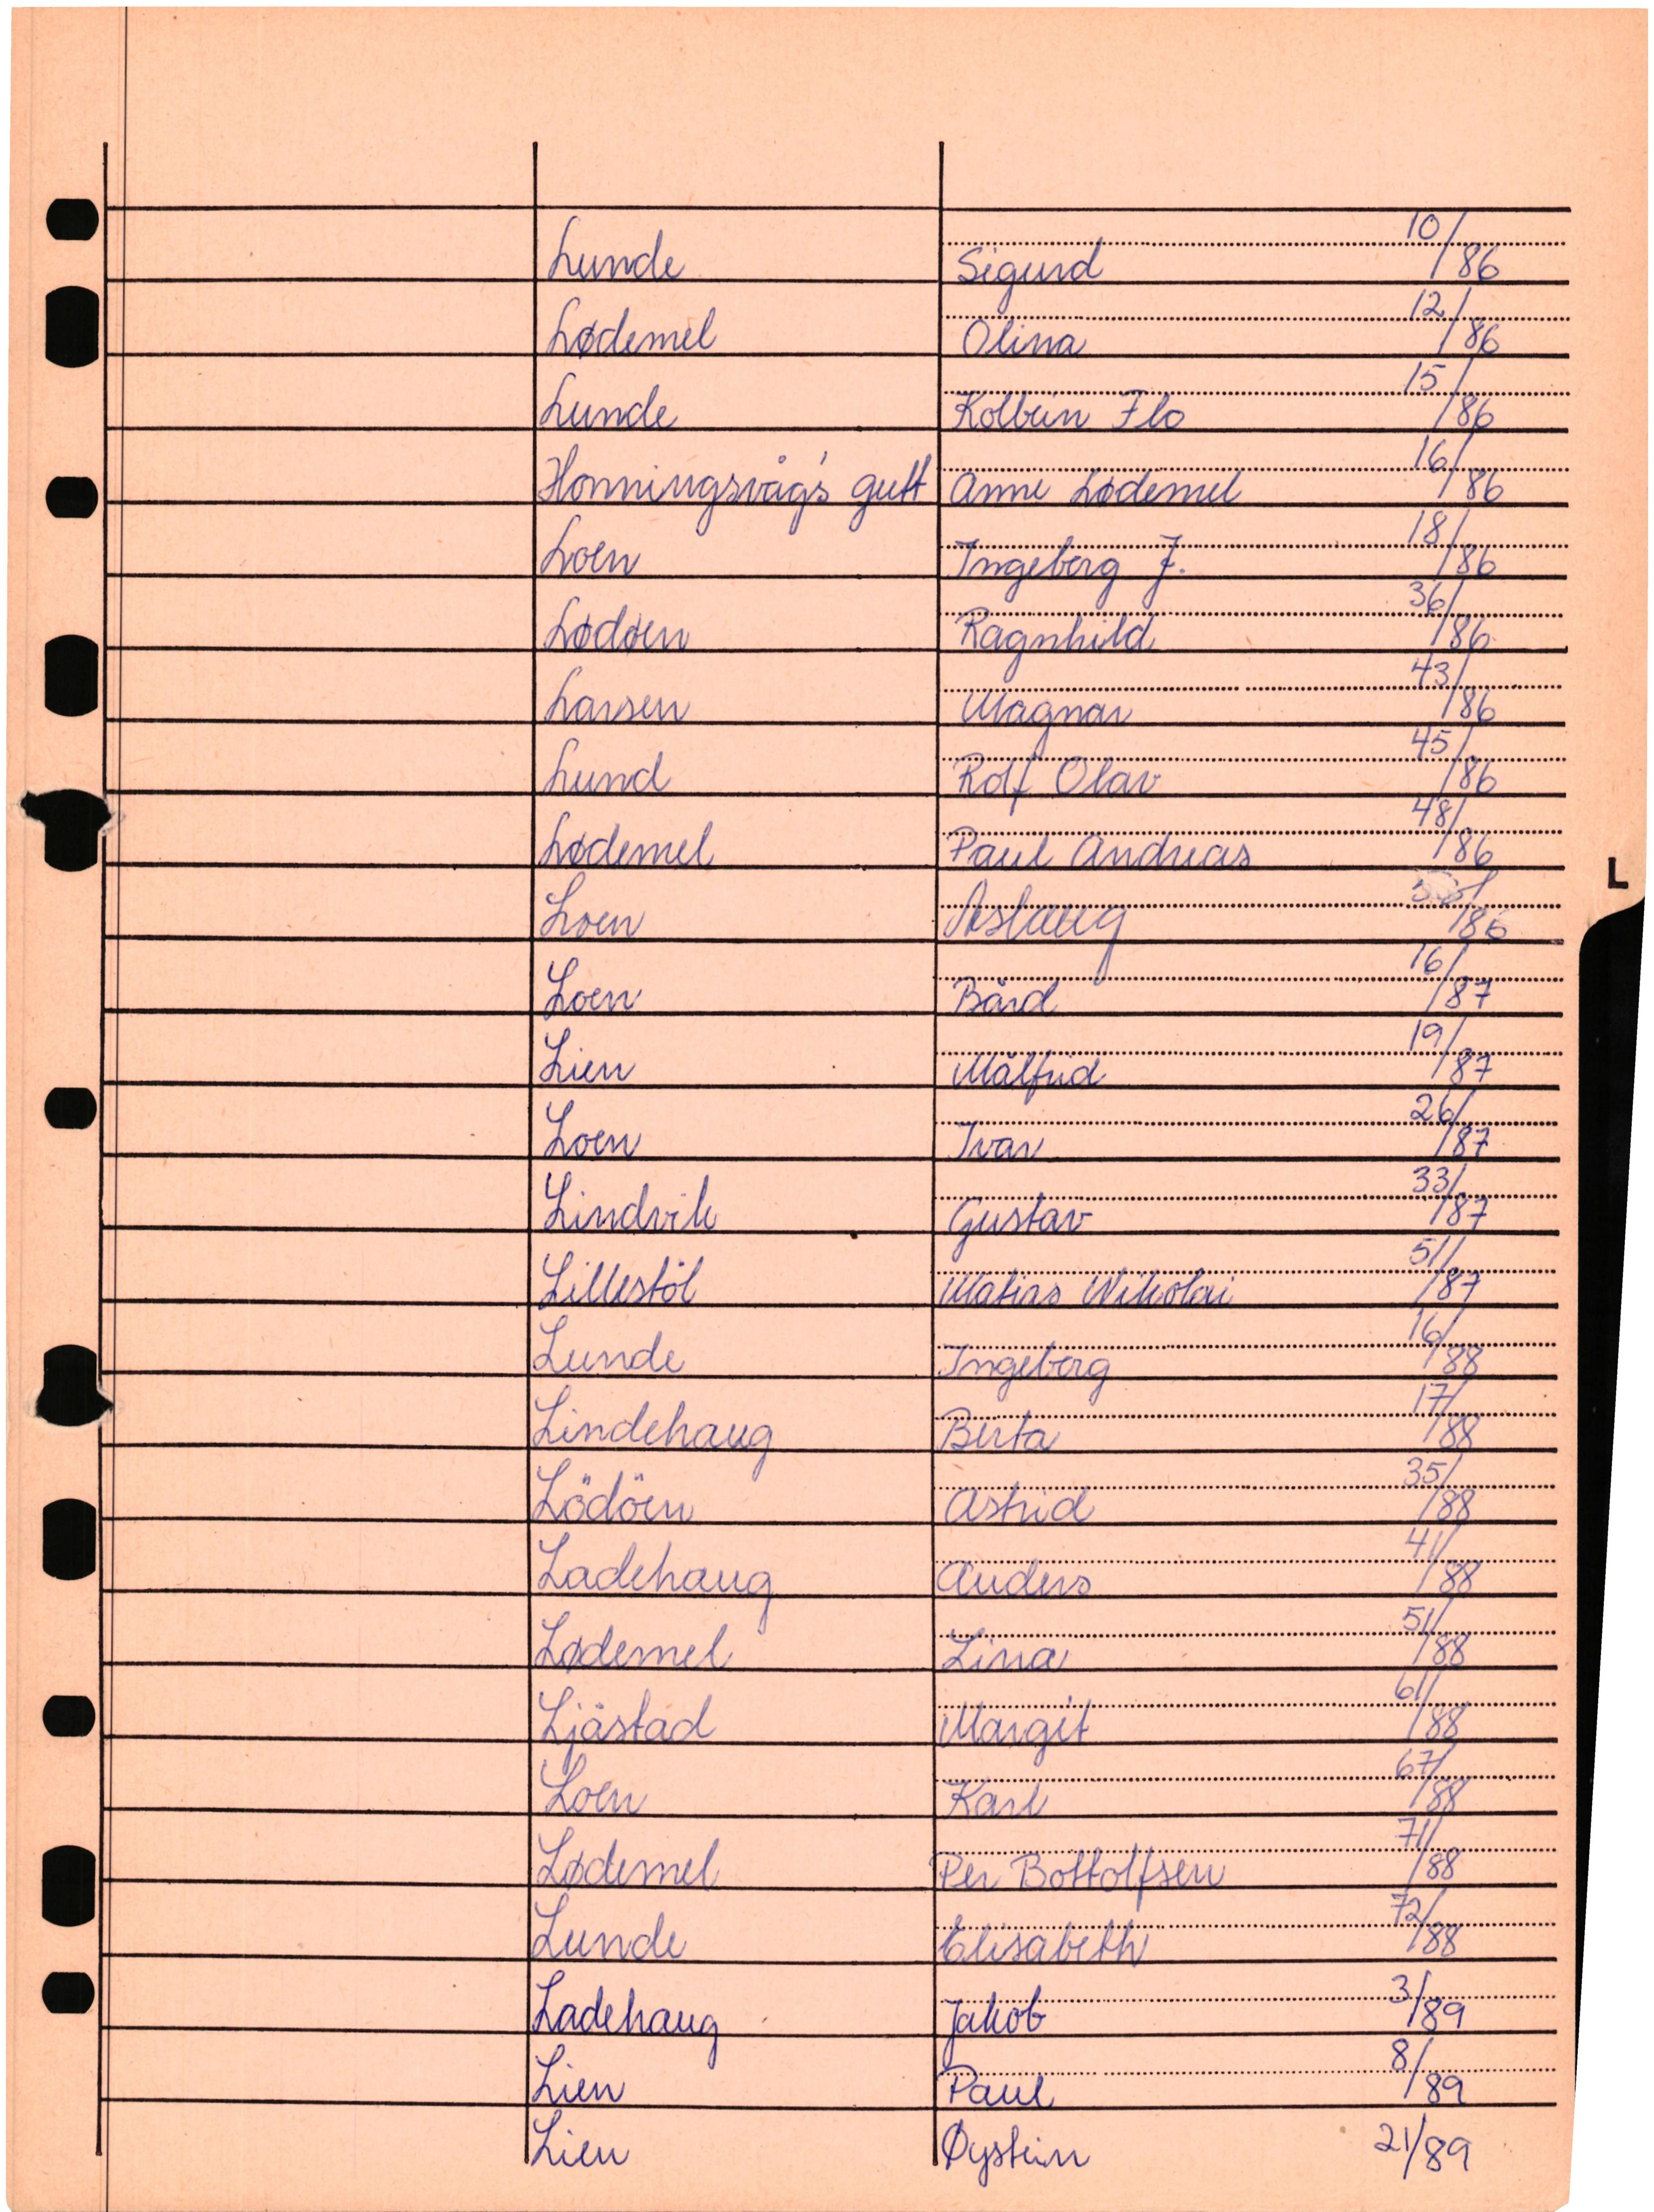 Lunde Sigurd 10/86
Lødemel Olina 12/86
Lunde Kolbein Flo 15/86
Honningsvåg's gutt Anne Lødemel 16/86
Loen Ingeborg J. 18/86
Lødøen Ragnhild 36/86
Larsen Magnar 43/86
Lund Rolf Olav 45/86
Lødemel Paul Andreas 48/86
Loen Aslaug /86
L
Loen Bård 16/87
Lien Målfrid 19/87
Loen Ivar 26/87
Lindvik Gustav 33/87
Lillestöl Matias Nikolai 51/87
Lunde Ingeborg 16/88
Lindehaug Berta 17/88
Lödöen Astrid 35/88
Ladehaug Anders 41/88
Lødemel Lina 51/88
Ljåstad Margit 61/88
Loen Karl 67/88
Lødemel Per Bottolfsen 71/88
Lunde Elisabeth 72/88
Ladehaug Jakob 3/89
Lien Paul 8/89
Lien Øystein 21/89